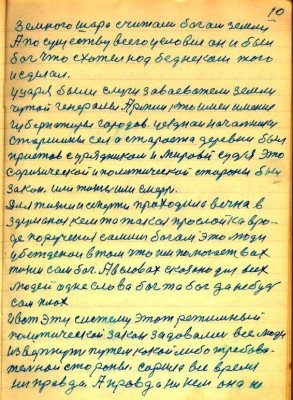 10
Земного шара считали богам земли
А по существу всего условия он и был
бог что схотел над бедняком того
и сделал.
у царя были слуги заваеватели земли
чужой генералы Армии кто имел имение
губернаторы городов. уездная начальники
старшины села старожа деревни был
пристов с урядником и мировй судья это
с политической стороны был
закон. или жизь или смерь.
Для жизни и смерти проходила вечна в
кем то такая прослойка вро-
де поручения самим богам это люди
убежденои в том что им помогает в ах
жизни сам бог. А в словах сказно для всех
людей одне слова бог та бог да не буд
сам плох
И вот эту систему этот режимный
политической закон задовами все люди
извергнут путем какой либо требова-
тельной стороны. все время
ни правда. А правда ни кем она не